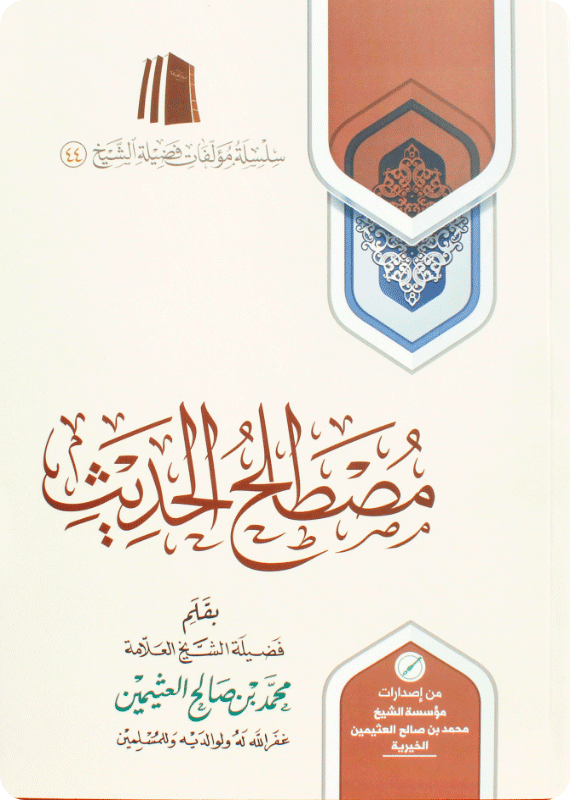 سلسلة مؤلفات فضيلة الشيخ (٤٤)
مُصْطَلَحُ الحَدِيثِ
بقلم
فضيلة الشيخ العلامة
محمد بن صالح العثيمين
غفر الله له ولوالديه وللمسلمين
من إصدارات
مؤسسة الشيخ
محمد بن صالح العثيمين
الخيرية